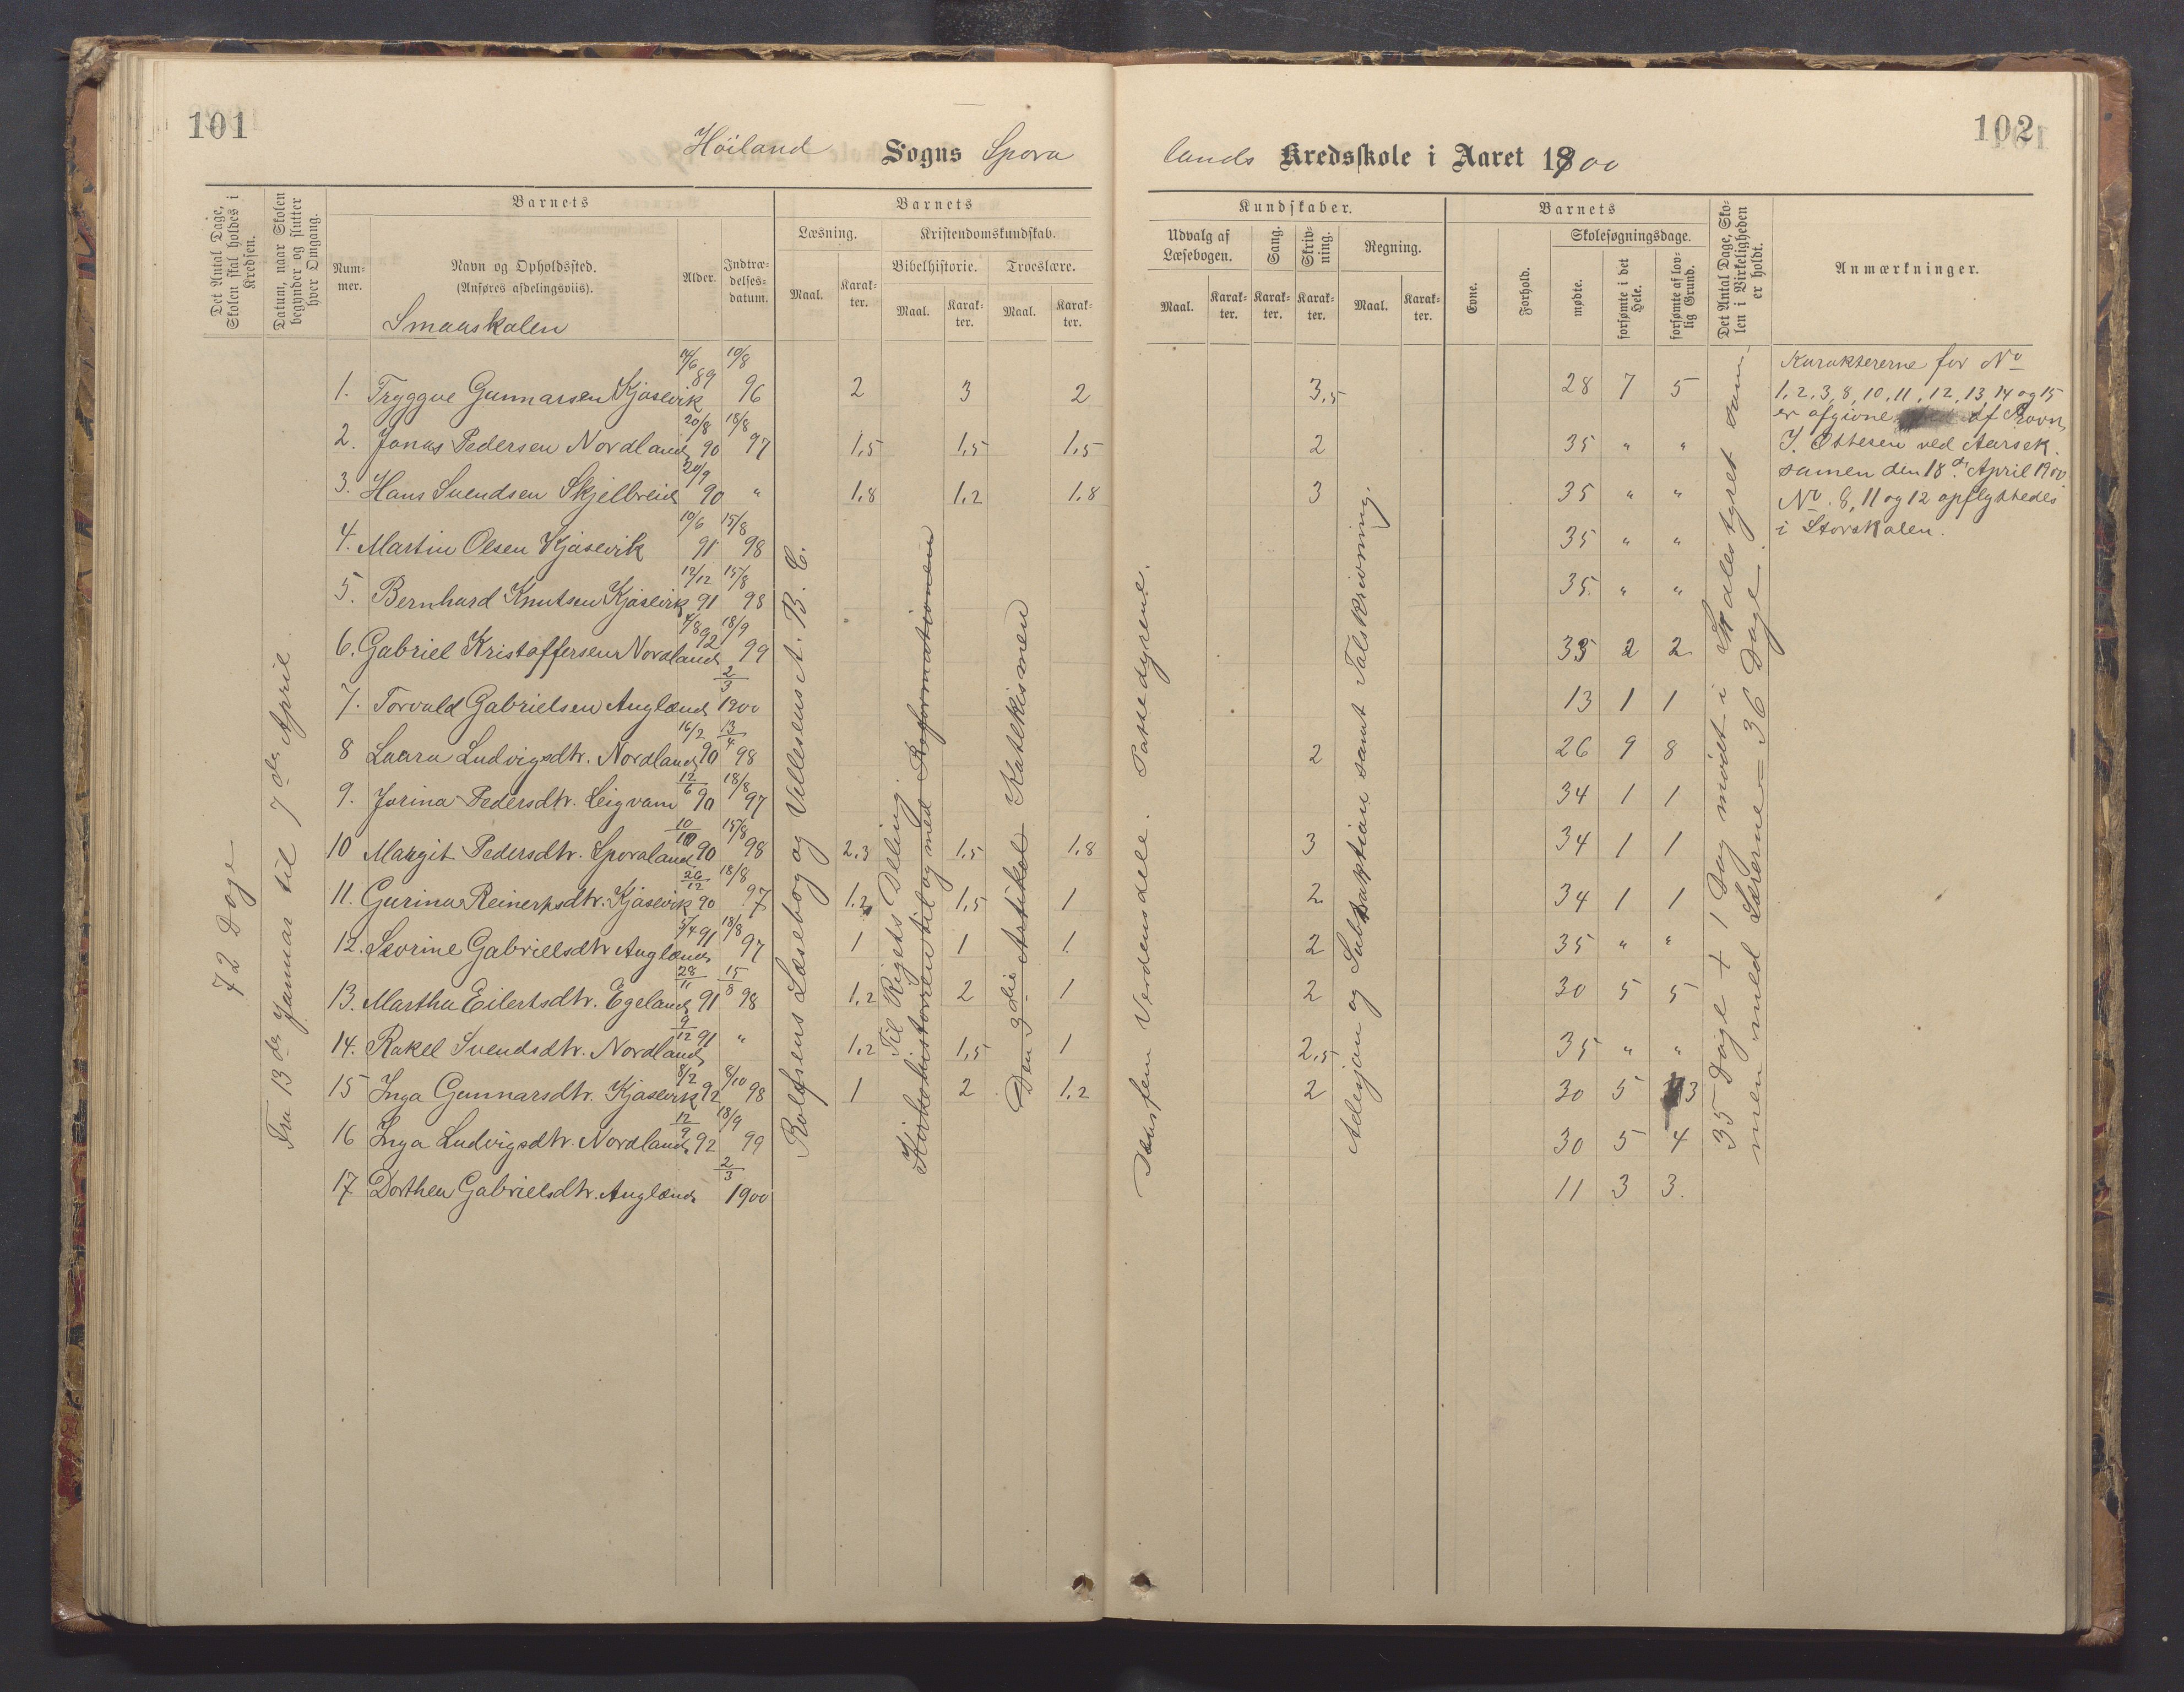 101
102
Höiland Sogns Spora
lands Kredsskole i Aaret 1900
Det Antal Dage, Skolen skal holdes i Kredsen.
Datum, naar Skolen begynder og slutter hver Omgang.
Barnets
Num-mer.
Navn og Opholdssted.
(Anføres afdelingsviis).
Smaaskolen
Alder.
Indtræ-delses-datum.
Barnets
Læsning.
Kristendomskundskab.
Bibelhistorie.
Troeslære.
Maal.
Karak-ter.
Maal.
Karak-ter.
Maal.
Karak-ter.
Kundskaber.
Udvalg af Læsebogen.
Sang.
Skriv-ning.
Regning.
Maal.
Karak-ter.
Karak-ter.
Karak-ter.
Maal.
Karak-ter.
Barnets
Evne.
Forhold.
Skolesøgningsdage.
mødte.
forsømte i det Hele.
forsømte af lov-lig Grund.
Det Antal Dage, Sko-len i Virkeligheden er holdt.
Anmærkninger.
72 Dage
Fra 13de Januar til 7de April.
1. Tryggve Gunnarsen Kjøsevik 89 10/8 96 2 3 2 3,5 28 7 5
2. Jonas Pedersen Nordland 20/8 90 18/8 97 1,5 1,5 1,5 2 35 " "
3. Hans Svendsen Skjelbreid 20/9 90 " 1,8 1,2 1,8 3 35 " "
4. Martin Olsen Kjøsevik 10/6 91 15/8 98 35 " "
5. Bernhard Knutsen Kjøsevik 12/12 91 15/8 98 35 " "
6. Gabriel Kristoffersen Nordland 4/8 92 18/9 99 33 2 2
7. Torvald Gabrielsen Auglænd 2/3 1900 13 1 1
8 Laura Ludvigsdtr. Nordland 16/2 90 13/4 98 2 26 9 8
9. Jorina Pedersdtr. Leigvam 12/6 90 18/8 97 34 1 1
10 Margit Pedersdtr. Sporaland 10/10 90 15/8 98 2,3 1,5 1,8 3 34 1 1
11. Gurina Reinertsdtr. Kjøsevik 26/12 90 18/8 97 1,2 1,5 1 2 34 1 1
12. Severine Gabrielsdtr Auglænd 5/4 91 18/8 97 1 1 1 2 35 " "
13. Martha Eilertsdtr. Egeland 28/11 91 15/8 98 1,2 2 1 2 30 5 5
14. Rakel Svendsdtr. Nordland 9/12 91 " 1,2 1,5 1 2,5 35 " "
15 Inga Gunnarsdtr. Kjøsevik 8/2 92 8/10 98 1 2 1,2 2 30 5 3
16 Inga Ludvigsdtr. Nordland 12/9 92 18/9 99 30 5 4
17 Dorthea Gabrielsdtr. Auglænd 2/3 1900 11 3 3.
Rolfsens Læsebog og Vellesens A. B. C.
Til Rigets Deling
Kirkehistorien til og med Reformationen
Den 3die Artikel Katekismen
De fem Verdensdele. Pattedyrene.
Adisjon og Subtraktion samt Talskrivning.
35 Dage + 1 Dag mödt i Skolestyret sam-
men med Lærerne = 36 Dage.
Karaktererne for No
1, 2, 3, 8, 10, 11, 12, 13, 14 og 15
er afgivne af Provn
I. Ottesen ved Aarsek.
samen den 18de April 1900
No. 8, 11 og 12 opflyttedes
i Storskolen.